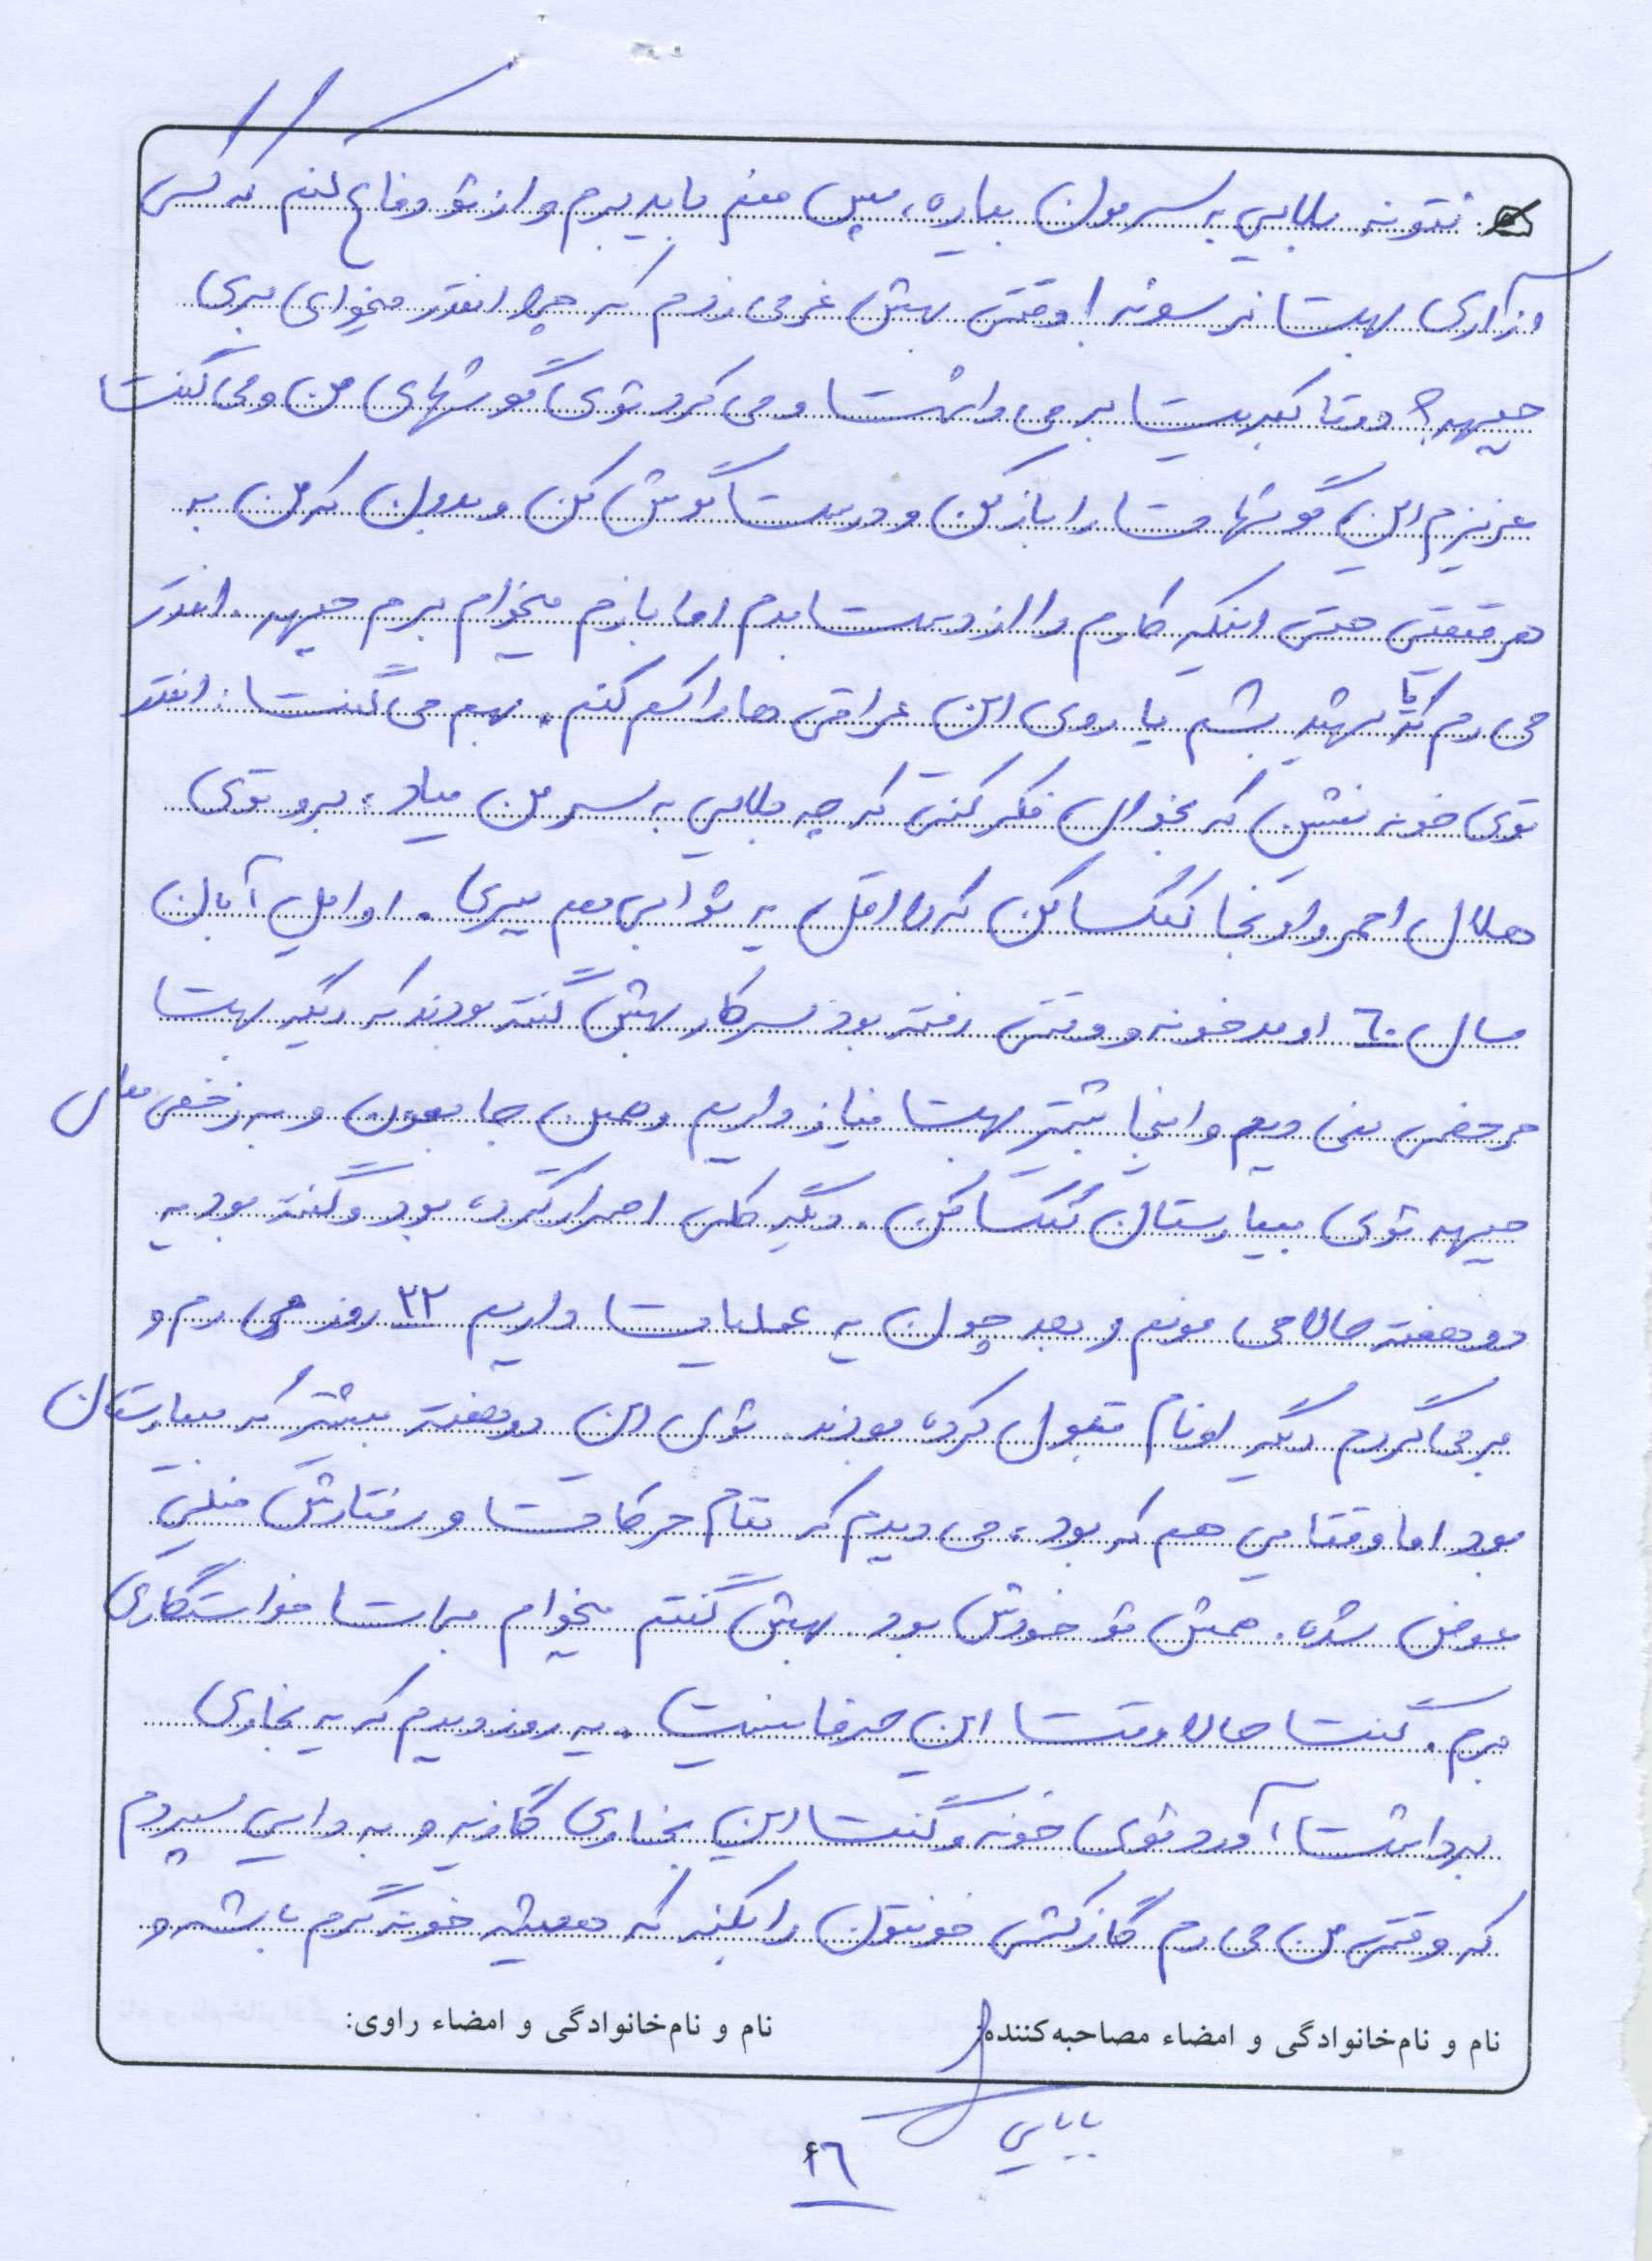 نتونه بلایی به سرمون بیاره، پس منم باید برم و از تو دفاع کنم که کسی
آزاری بهت نرسونه! وقتی بهش غر می زدم که چرا انقدر میخوای بری
جبهه؟ دوتا کبریت برمی داشت و می کرد توی گوشهای من و می گفت
عزیزم این گوشهات را باز کن و درست گوش کن و بدون که من به
هر قیمتی حتی اینکه کارم را از دست بدم اما بازم میخوام برم جبهه. انقدر
می رم که تا شهید بشم یا روی این عراقی ها را کم کنم. بهم می گفت: انقدر
توی خونه نشین که بخوای فکر کنی که چه بلایی به سر من میاد، برو توی
هلال احمر و اونجا کمک کن که لااقل یه ثوابی هم ببری. اوایل آبان
سال ٦٠ اومد خونه و وقتی رفته بود سر کار بهش گفته بودند که دیگه بهت
مرخصی نمی دیم و اینجا بیشتر بهت نیاز داریم و همین جا بمون و به زخمی های
جبهه توی بیمارستان کمک کن. دیگه کلی اصرار کرده بود و گفته بود یه
دو هفته حالا می مونم و بعد چون یه عملیات داریم ٢٢ روز می رم و
برمی گردم دیگه اونام قبول کرده بودند. توی این دو هفته بیشتر که بیمارستان
بود اما وقتایی هم که بود، می دیدم که تمام حرکات و رفتارش خیلی
عوض شده. همش تو خودش بود. بهش گفتم میخوام برات خواستگاری
برم. گفت حالا وقت این حرفا نیست. یه روز دیدم که یه بخاری
برداشت آورد توی خونه و گفت این بخاری گازیه و به دایی سپردم
که وقتی من می رم گازکشی خونتون را بکنه که همیشه خونه گرم باشه و
نام و نام‌خانوادگی و امضاء مصاحبه‌کننده:
نام و نام‌خانوادگی و امضاء راوی:
بابایی